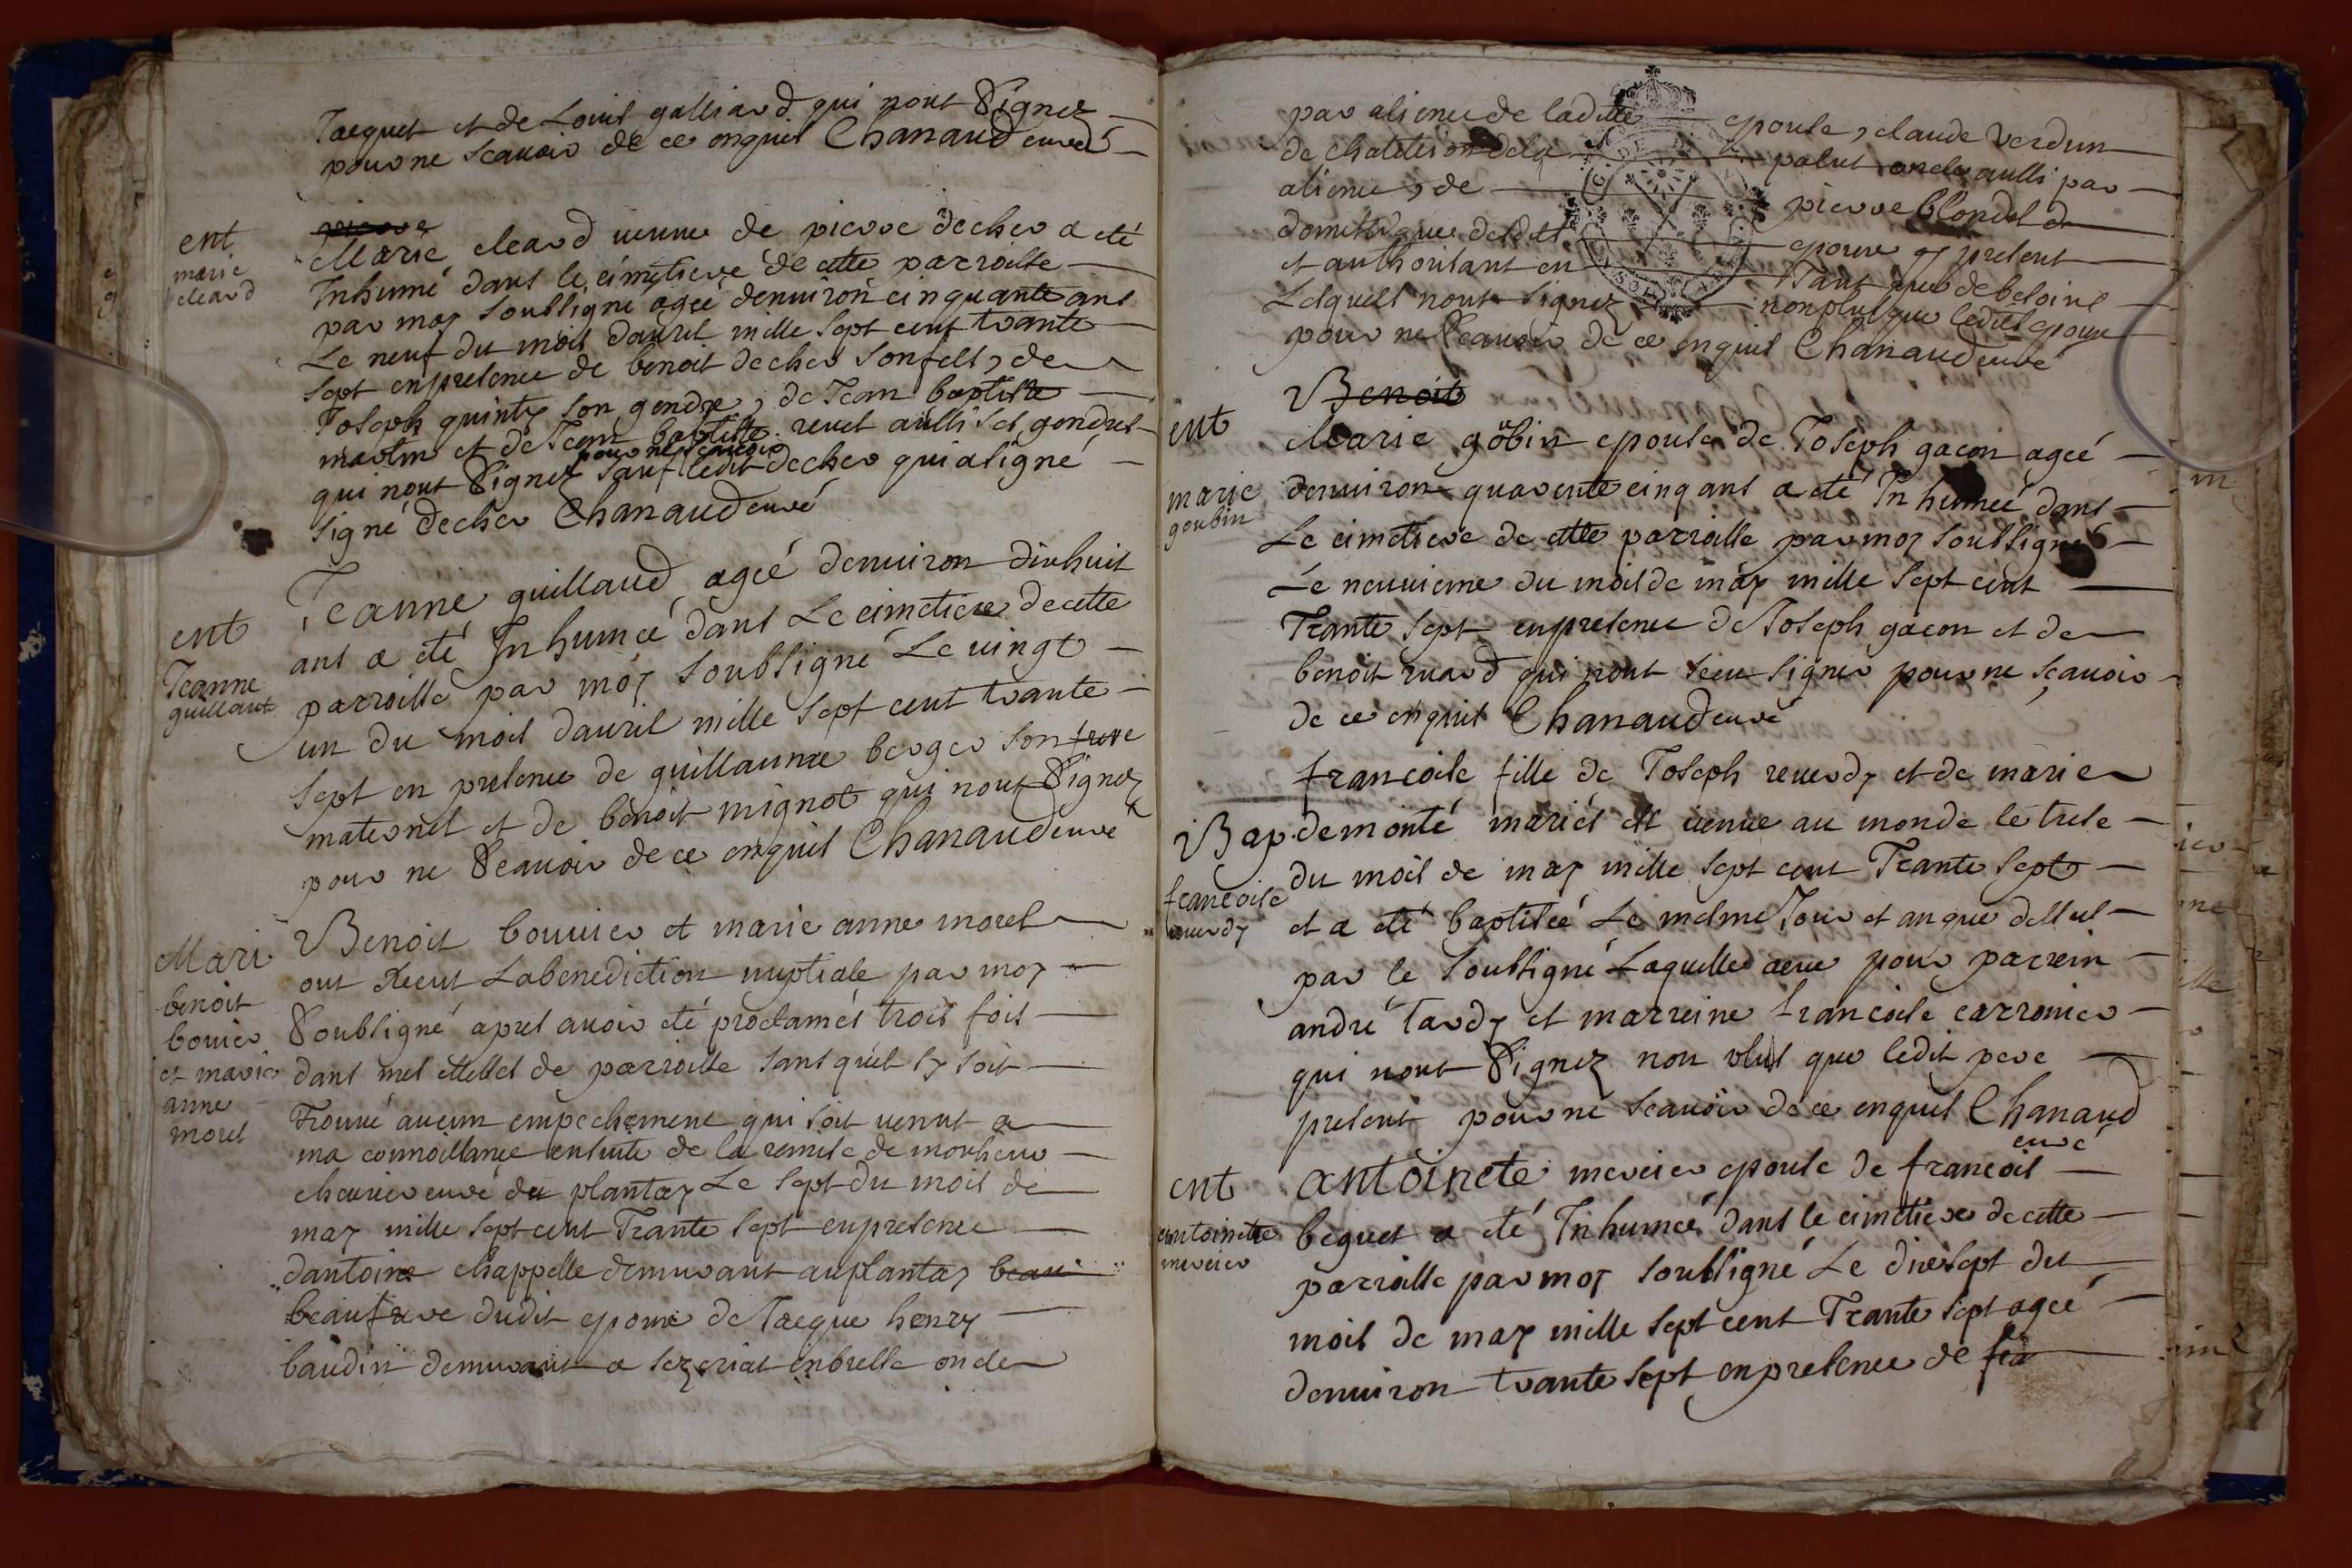 Jacquet et de Louis galliard qui nont Signez
pour ne scauoir de ce enquis Chanaud curé
ent
marie
cleard
pierre
Marie cleard veuue de pierre decher a eté
Inhumé dans le cimetiere de cette parroisse
par moy soubsigné ageé denuiron cinquante ans
Le neuf du mois dauril mille sept cent trante
sept enpresence de benoit decher son fils, de
Joseph quinty son gendre, de Jean baptiste
martin et de Jean baptiste reuet aussi ses gendres
pour ne scauoir
qui nont Signez sauf ledit decher qui a signé
signé decher Chanaud curé
ent
Jeanne
guillaut
Jeanne guillaud ageé denuiron dixhuit
ans a eté Inhumeé dans Le cimetiere de cette
parroisse par moy soubsigné Le vingt
un du mois dauril mille sept cent trante
sept en presence de guillaume berger son frere
maternel et de benoit mignot qui nont Signez
pour ne Scauoir de ce enquis Chanaud curé
Mari
benoit
bouier
et marie
anne
morel
Benoit bouuier et marie anne morel
ont Receut La benediction nuptiale par moy
Soubsigné apres auoir eté proclamés trois fois
dans mes messes de parroisse sans quil sy soit
Trouué aucun empechement qui soit venut a
ma connoissance ensuite de la remise de monsieur
cheurier curé du plantay Le sept du mois de
may mille sept cent Trante sept enpresence
dantoine chappelle demurant au plantay beau
beaufrere dudit epoux de Jacque henry
baudin demurant a sezeriat enbresse oncle
par alience de laditte epouse, claude verdun
de chatillion dela palut oncle aussi par
alience, de pierre blondel
domestique desdits epoux y present
et authorisant en Tant que de besoins
Lesquels nont signez nonplus que lesdits epoux
pour ne Scauoir de ce enquis Chanaud curé
Benoit
ent
marie
goubin
Marie gobin epouse de Joseph gacon ageé
denuiron quarente cinq ans a eté Inhumeé dans
Le cimetiere de cette parroisse par moy soubsigné
Le neuuieme du mois de may mille sept cent
Trante sept enpresence de Joseph gacon et de
benoit ruard qui nont sceu signer pour ne scauoir
de ce enquis Chanaud curé
Bap
francoise
reuerdy
francoise fille de Joseph reuerdy et de marie
demonté mariés est venue au monde le trese
du mois de may mille sept cent Trante sept
et a eté baptiseé Le mesme Jour et an que dessus
par le soubsigné Laquelle a eue pour parrein
andré tardy et marreine francoise carronier
qui nont Signez non plus que ledit pere
present pour ne scauoir de ce enquis Chanaud
curé
ent
antoinette
mercier
antoinete mercier epouse de francois
beguet a eté Inhumeé dans le cimetiere de cette
parroisse par moy soubsigné Le diresept du
mois de may mille sept cent Trante sept ageé
denuiron trante sept enpresence de